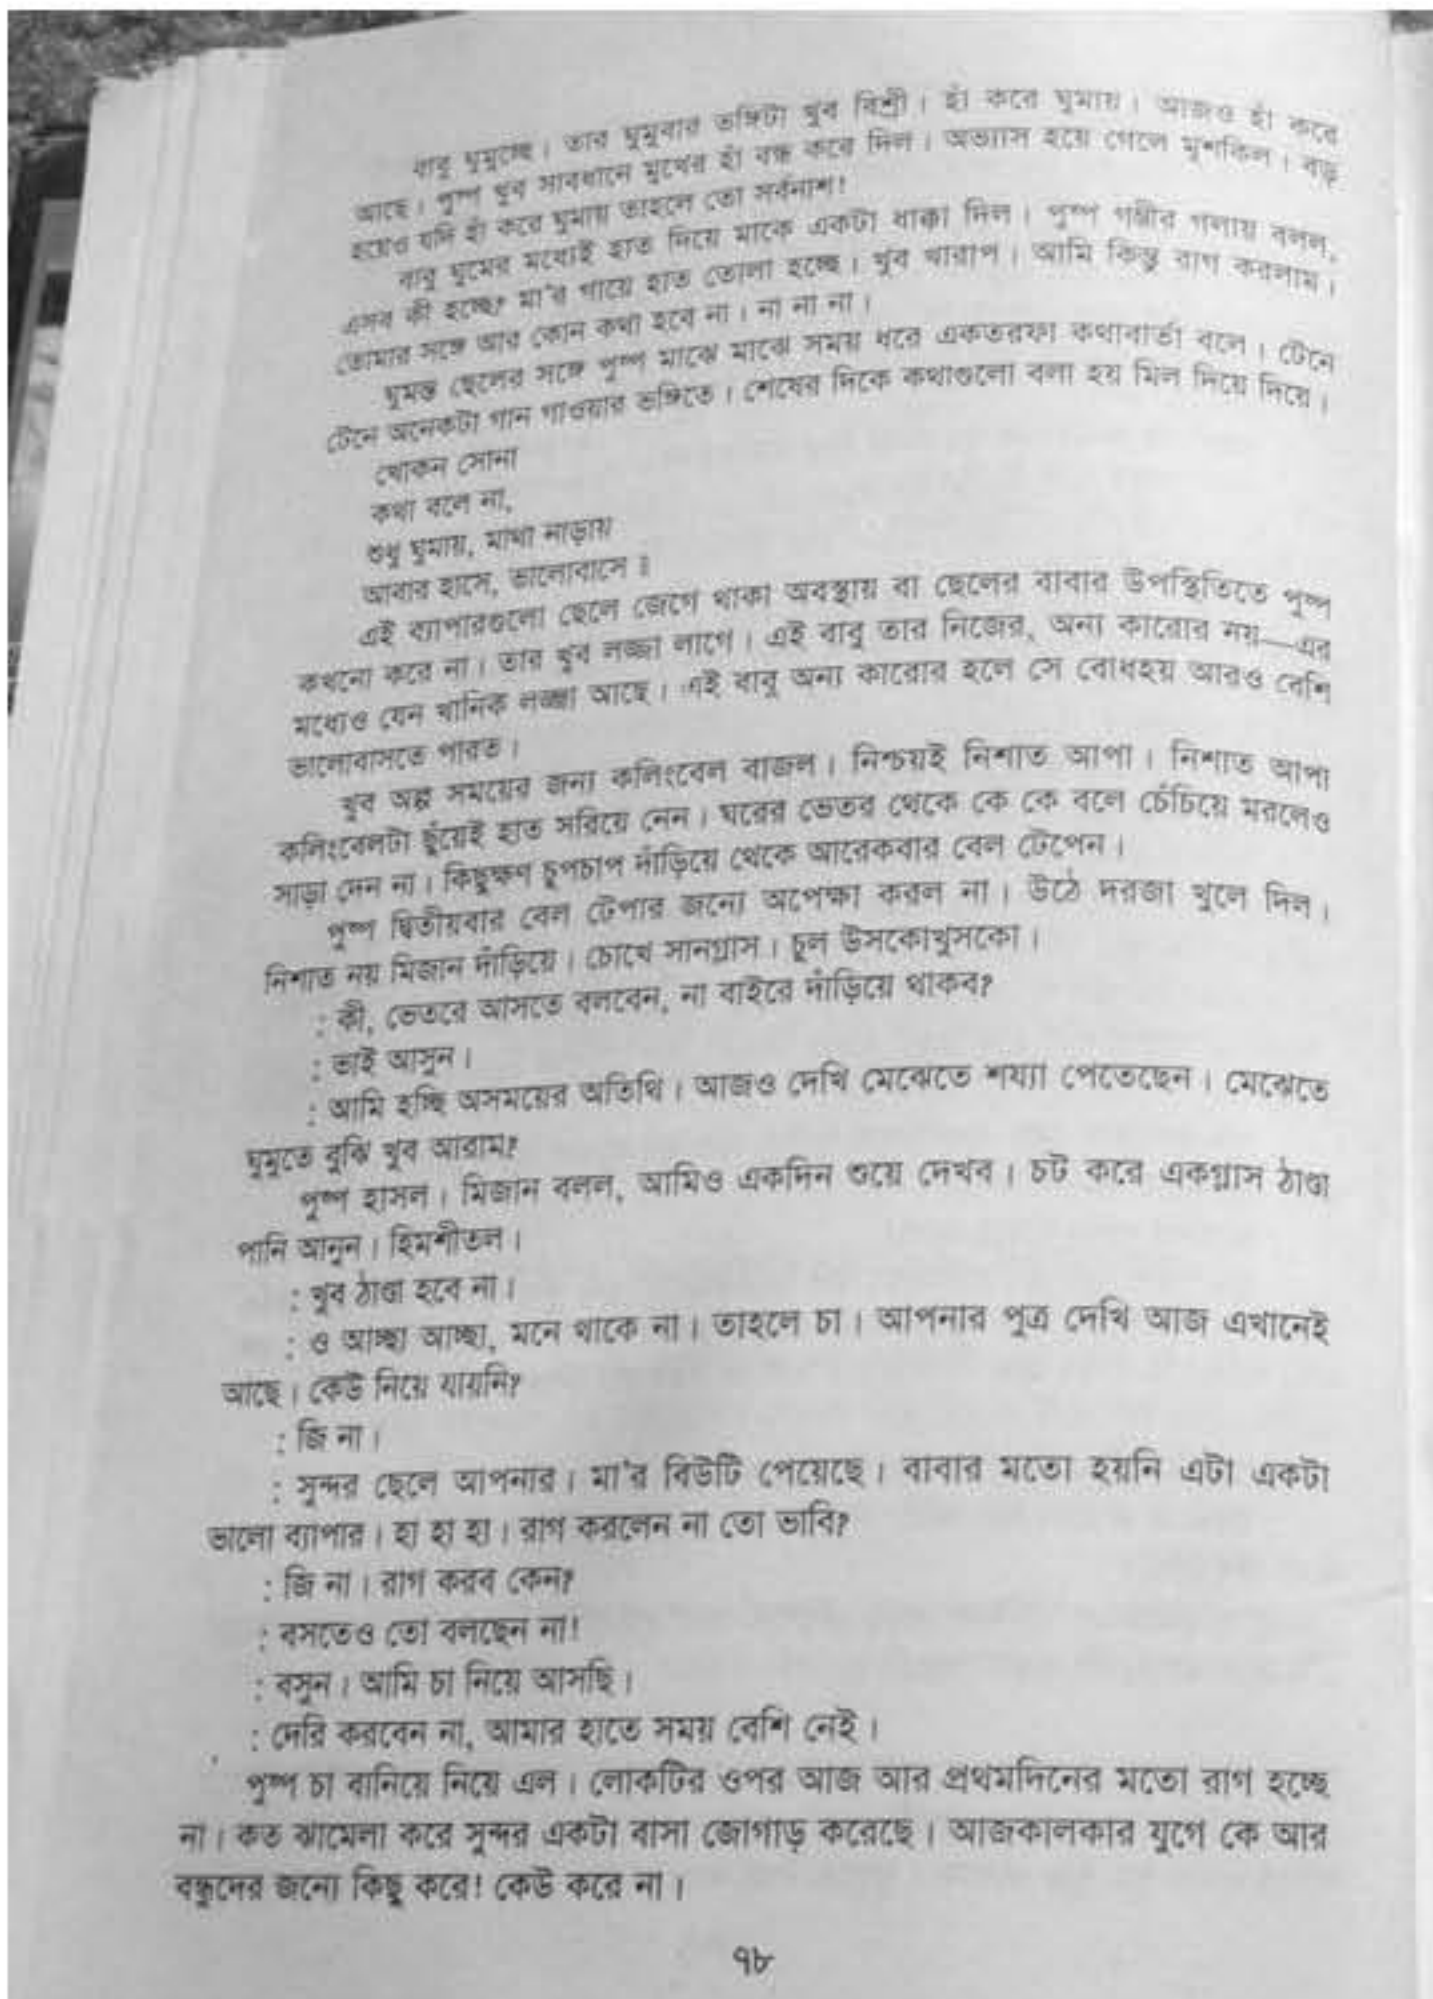 বাবু ঘুমুচ্ছে। তার ঘুমুবার ভঙ্গিটা খুব বিশ্রী। হাঁ করে ঘুমায়। আজও হাঁ করে
আছে। পুষ্প খুব সাবধানে মুখের হাঁ বন্ধ করে দিল। অভ্যাস হয়ে গেলে মুশকিল। বড়
হয়েও যদি হাঁ করে ঘুমায় তাহলে তো সর্বনাশ!
বাবু ঘুমের মধ্যেই হাত দিয়ে মাকে একটা ধাক্কা দিল। পুষ্প গম্ভীর গলায় বলল,
এসব কী হচ্ছে? মা'র গায়ে হাত তোলা হচ্ছে। খুব খারাপ। আমি কিন্তু রাগ করলাম।
তোমার সঙ্গে আর কোন কথা হবে না। না না না।
ঘুমন্ত ছেলের সঙ্গে পুষ্প মাঝে মাঝে সময় ধরে একতরফা কথাবার্তা বলে। টেনে
টেনে অনেকটা গান গাওয়ার ভঙ্গিতে। শেষের দিকে কথাগুলো বলা হয় মিল দিয়ে দিয়ে।
খোকন সোনা
কথা বলে না,
শুধু ঘুমায়, মাথা নাড়ায়
আবার হাসে, ভালোবাসে॥
এই ব্যাপারগুলো ছেলে জেগে থাকা অবস্থায় বা ছেলের বাবার উপস্থিতিতে পুষ্প
কখনো করে না। তার খুব লজ্জা লাগে। এই বাবু তার নিজের, অন্য কারোর নয়—এর
মধ্যেও যেন খানিক লজ্জা আছে। এই বাবু অন্য কারোর হলে সে বোধহয় আরও বেশি
ভালোবাসতে পারত।
খুব অল্প সময়ের জন্য কলিংবেল বাজল। নিশ্চয়ই নিশাত আপা। নিশাত আপা
কলিংবেলটা ছুঁয়েই হাত সরিয়ে নেন। ঘরের ভেতর থেকে কে কে বলে চেঁচিয়ে মরলেও
সাড়া দেন না। কিছুক্ষণ চুপচাপ দাঁড়িয়ে থেকে আরেকবার বেল টেপেন।
পুষ্প দ্বিতীয়বার বেল টেপার জন্যে অপেক্ষা করল না। উঠে দরজা খুলে দিল।
নিশাত নয় মিজান দাঁড়িয়ে। চোখে সানগ্লাস। চুল উসকোখুসকো।
: কী, ভেতরে আসতে বলবেন, না বাইরে দাঁড়িয়ে থাকব?
: ভাই আসুন।
: আমি হচ্ছি অসময়ের অতিথি। আজও দেখি মেঝেতে শয্যা পেতেছেন। মেঝেতে
ঘুমুতে বুঝি খুব আরাম?
পুষ্প হাসল। মিজান বলল, আমিও একদিন শুয়ে দেখব। চট করে একগ্লাস ঠাণ্ডা
পানি আনুন। হিমশীতল।
: খুব ঠাণ্ডা হবে না।
: ও আচ্ছা আচ্ছা, মনে থাকে না। তাহলে চা। আপনার পুত্র দেখি আজ এখানেই
আছে। কেউ নিয়ে যায়নি?
: জি না।
: সুন্দর ছেলে আপনার। মা'র বিউটি পেয়েছে। বাবার মতো হয়নি এটা একটা
ভালো ব্যাপার। হা হা হা। রাগ করলেন না তো ভাবি?
: জি না। রাগ করব কেন?
: বসতেও তো বলছেন না!
: বসুন। আমি চা নিয়ে আসছি।
: দেরি করবেন না, আমার হাতে সময় বেশি নেই।
পুষ্প চা বানিয়ে নিয়ে এল। লোকটির ওপর আজ আর প্রথমদিনের মতো রাগ হচ্ছে
না। কত ঝামেলা করে সুন্দর একটা বাসা জোগাড় করেছে। আজকালকার যুগে কে আর
বন্ধুদের জন্যে কিছু করে! কেউ করে না।
৭৮